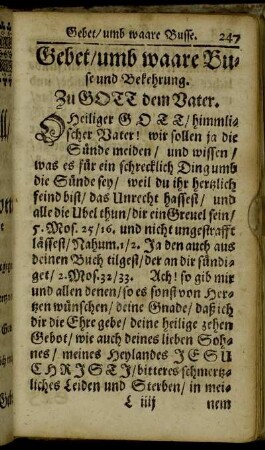 Gebet/umb waare Busse. 247
Gebet/umb waare Bu-
se und Bekehrung.
Zu GOTT dem Vater.
O Heiliger GOTT/himmli-
scher Vater! wir sollen ja die
Sünde meiden/ und wissen/
was es für ein schrecklich Ding umb
die Sünde sey/ weil du ihr hertzlich
feind bist/ das Unrecht hassest/ und
alle die Ubel thun/dir ein Greuel sein/
5. Mos. 25/16. und nicht ungestrafft
lässest/Nahum.1/2. Ja den auch aus
deinen Buch tilgest/der an dir sündi-
get/2.Mos.32/33. Ach! so gib mir
und allen denen/so es sonst von Her-
tzen wünschen/deine Gnade/daß ich
dir die Ehre gebe/deine heilige zehen
Gebot/wie auch deines lieben Soh-
nes/ meines Heylandes JESU
CHRISTI/bitteres schmertz-
liches Leiden und Sterben/ in mei-
L iiij nem